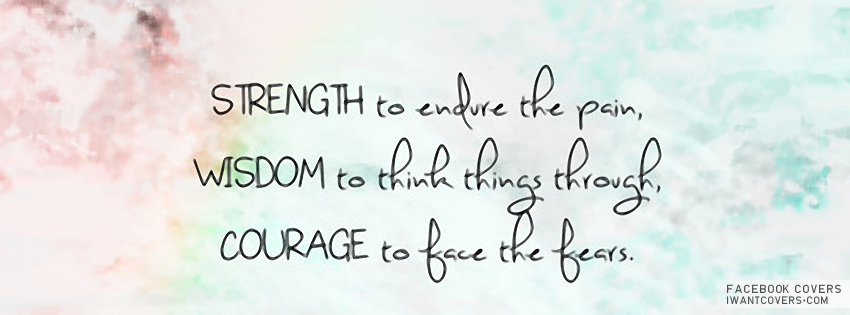 STRENGTH to endure the pain,
WISDOM to think things through,
COURAGE to face the fears.
FACEBOOK COVERS
IWANTCOVERS.COM